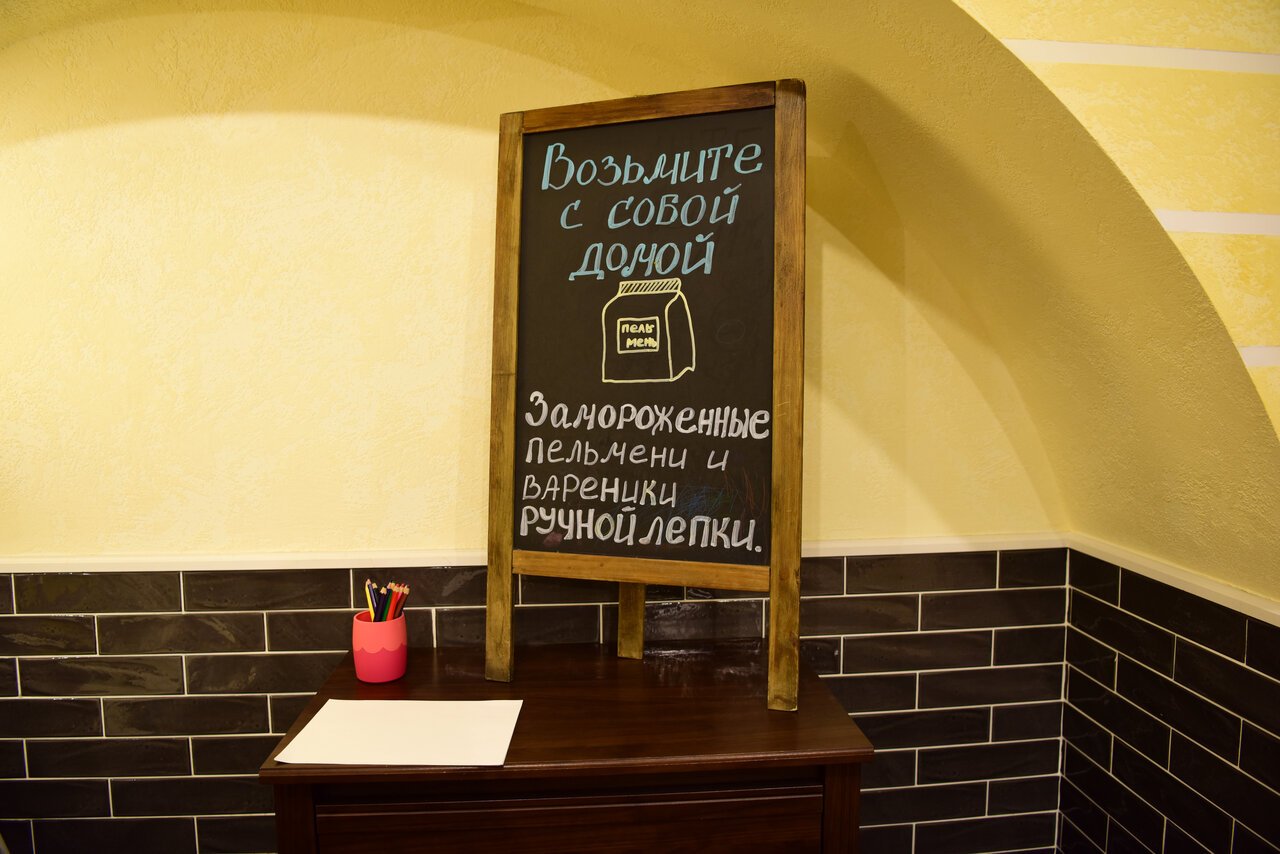 Возьмите
с собой
домой
пель
мень
Замороженные
пельмени и
вареники
ручной лепки.